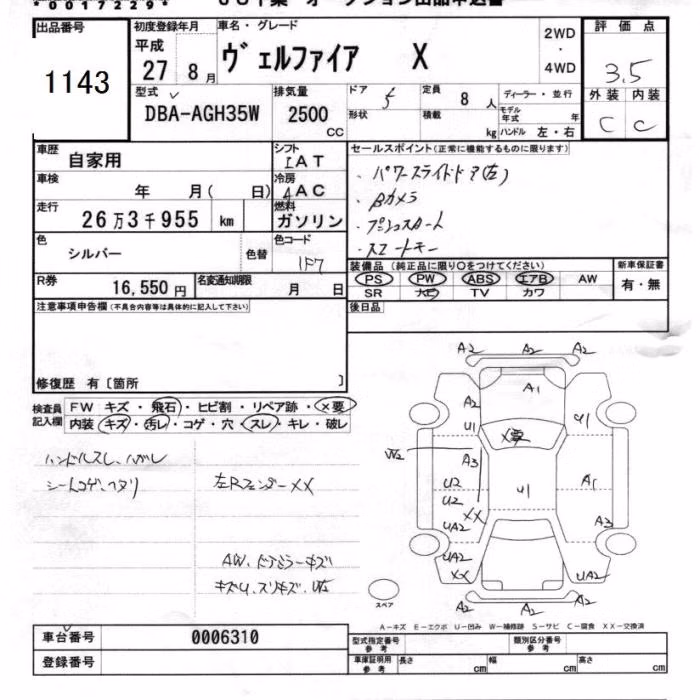 *0017229*
出品番号 初度登録年月 車名・グレード 2WD・4WD 評価点
1143 平成 27 8月 ヴェルファイア X 3.5
型式 排気量 ドア 定員 ディーラー・並行 外装 内装
DBA-AGH35W 2500 CC 5 8人 モデル年式 年 C C
形状 積載 kg ハンドル 左・右
車歴 自家用 シフト IAT セールスポイント(正常に機能するものに限ります)
車検 年 月( 日) 冷房 AAC ・パワースライドドア(左)
走行 26万3千955 km 燃料 ガソリン ・Bカメラ
・プッシュスタート
色 シルバー 色替 色コード 1F7 ・スマートキー
装備品(純正品に限り○をつけてください) 新車保証書
R券 16,550円 名変通知期限 月 日 PS PW ABS エアB AW 有・無
SR ナビ TV カワ
注意事項申告欄(不具合内容等は具体的に記入して下さい) 後日品
修復歴 有〔箇所 〕
検査員記入欄 FW キズ・飛石・ヒビ割・リペア跡・×要
内装 キズ・汚レ・コゲ・穴・スレ・キレ・破レ
ハンドルスレ、ハガレ
シートコゲ、ヘタリ 左Rフェンダー XX
AW、ドアミラーキズ
キズU、スリキズ、W2
A2 A2 A2
A1
A2
U1 U1
X要
W2 A3
U2 U1 A1
U2
XX A3
UA2
UA2
XX UA2
A2 A2 A2
スペア
A-キズ E-エクボ U-凹み W-補修跡 S-サビ C-腐食 XX-交換済
車台番号 0006310 型式指定番号 参考 類別区分番号 参考
登録番号 車庫証明用 参考 長さ cm 幅 cm 高さ cm